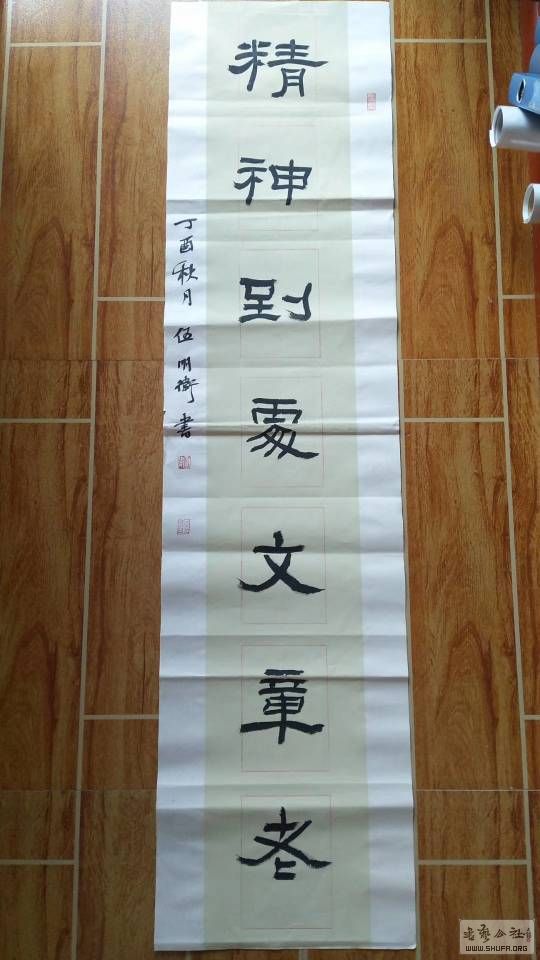 精神到處文章老
丁酉秋月 伍明衛 書
WWW.SHUFA.ORG